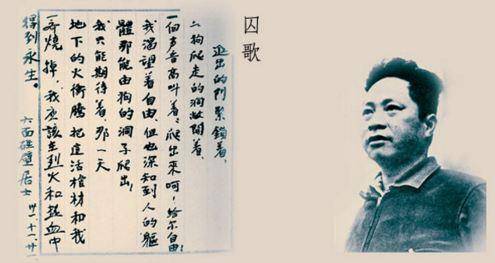 囚歌
進出的门紧鎖着,
狗爬走的洞敞開着,
一個声音高叫着:爬出来呵,给尔自由!
我渴望着自由,但也深知到人的軀
體那能由狗的洞子爬出!
我只能期待着,那一天
地下的火衝騰把這活棺材和我
一齊燒掉,我應該在烈火和热血中
得到永生。
六面碰壁居士 卅一.十一.廿一